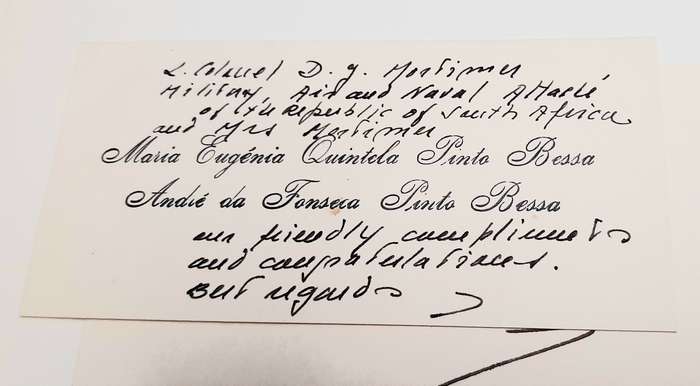 L. Colonel D. J. Mortimer
Military, Air and Naval Attaché
of the Republic of South Africa
and Mrs Mortimer
Maria Eugénia Quintela Pinto Bessa
André da Fonseca Pinto Bessa
our friendly compliments
and congratulations.
Best regards